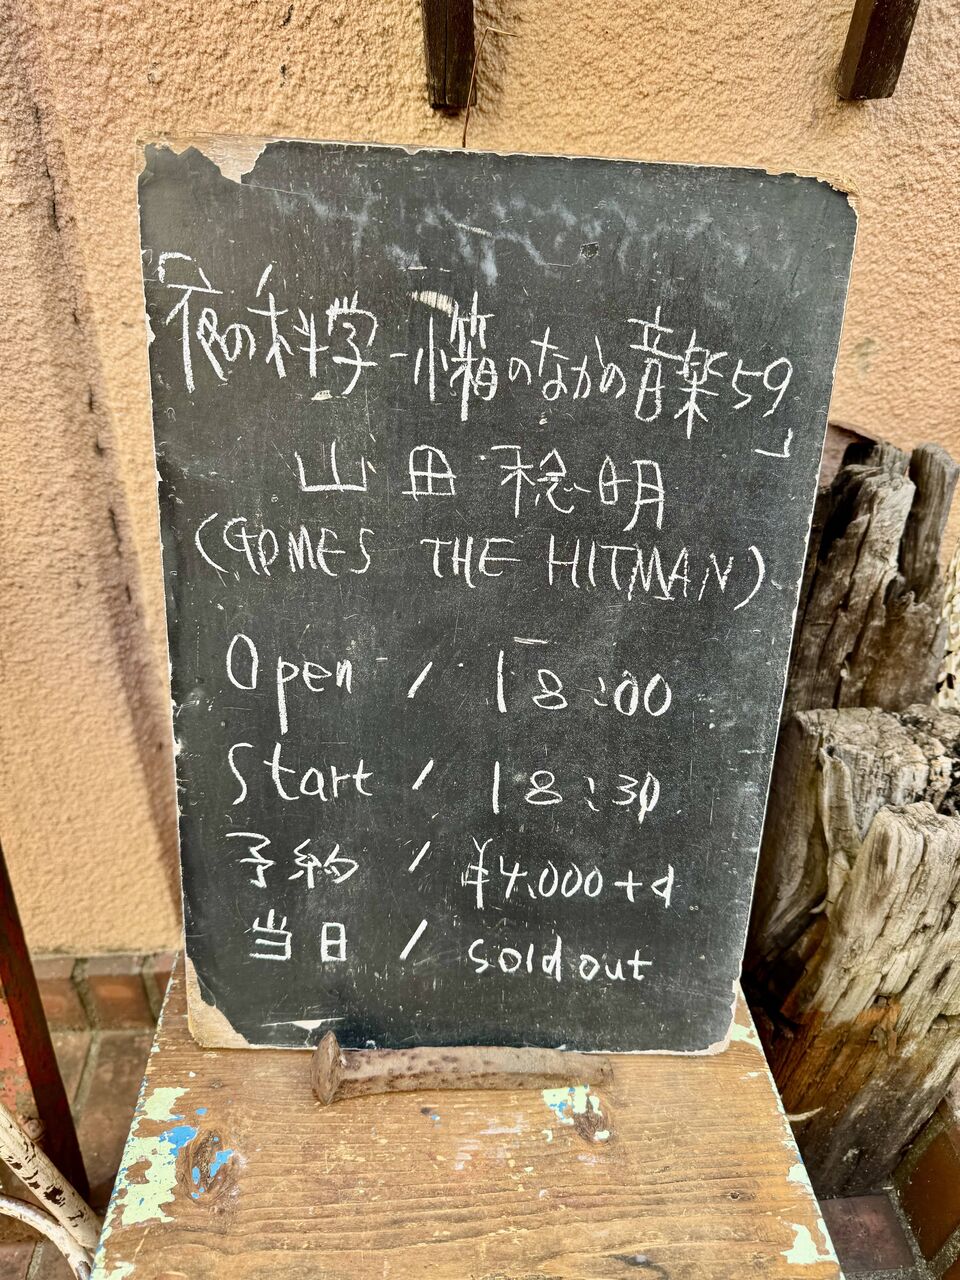 「夜の科学-木箱のなかの音楽59」
山田稔明
(GOMES THE HITMAN)
Open / 18:00
Start / 18:30
予約 / ¥4,000+d
当日 / sold out